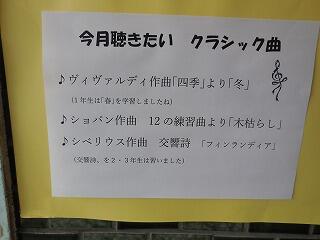 今月聴きたい クラシック曲
♪ヴィヴァルディ作曲「四季」より「冬」
(1年生は「春」を学習しましたね)
♪ショパン作曲 12の練習曲より「木枯らし」
♪シベリウス作曲 交響詩 「フィンランディア」
(交響詩、を2・3年生は習いました)